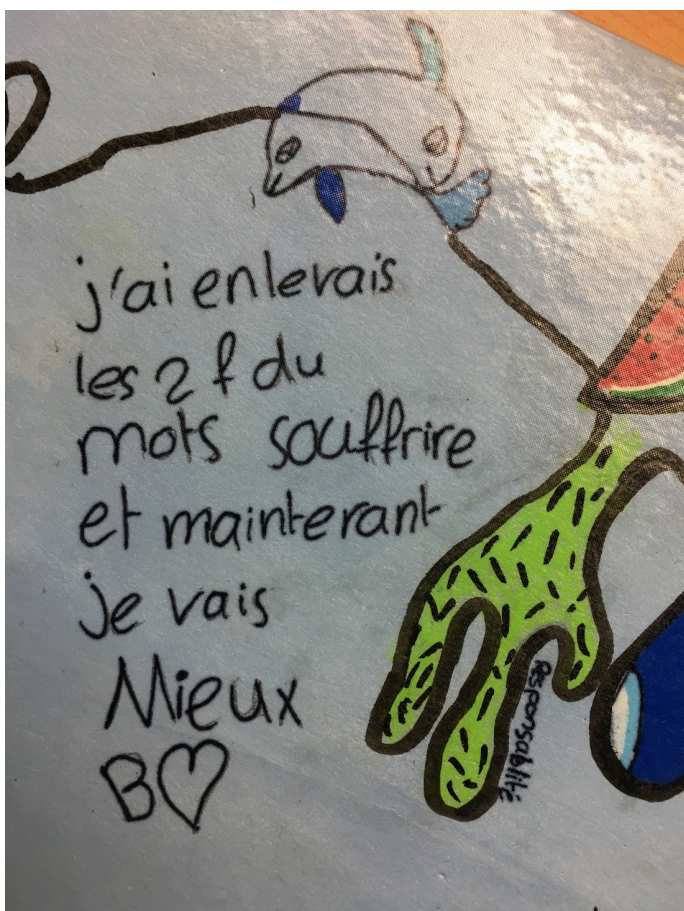 j'ai enlevais
les 2 f du
mots souffrire
et mainterant
je vais
Mieux
B♡
Responsabilité